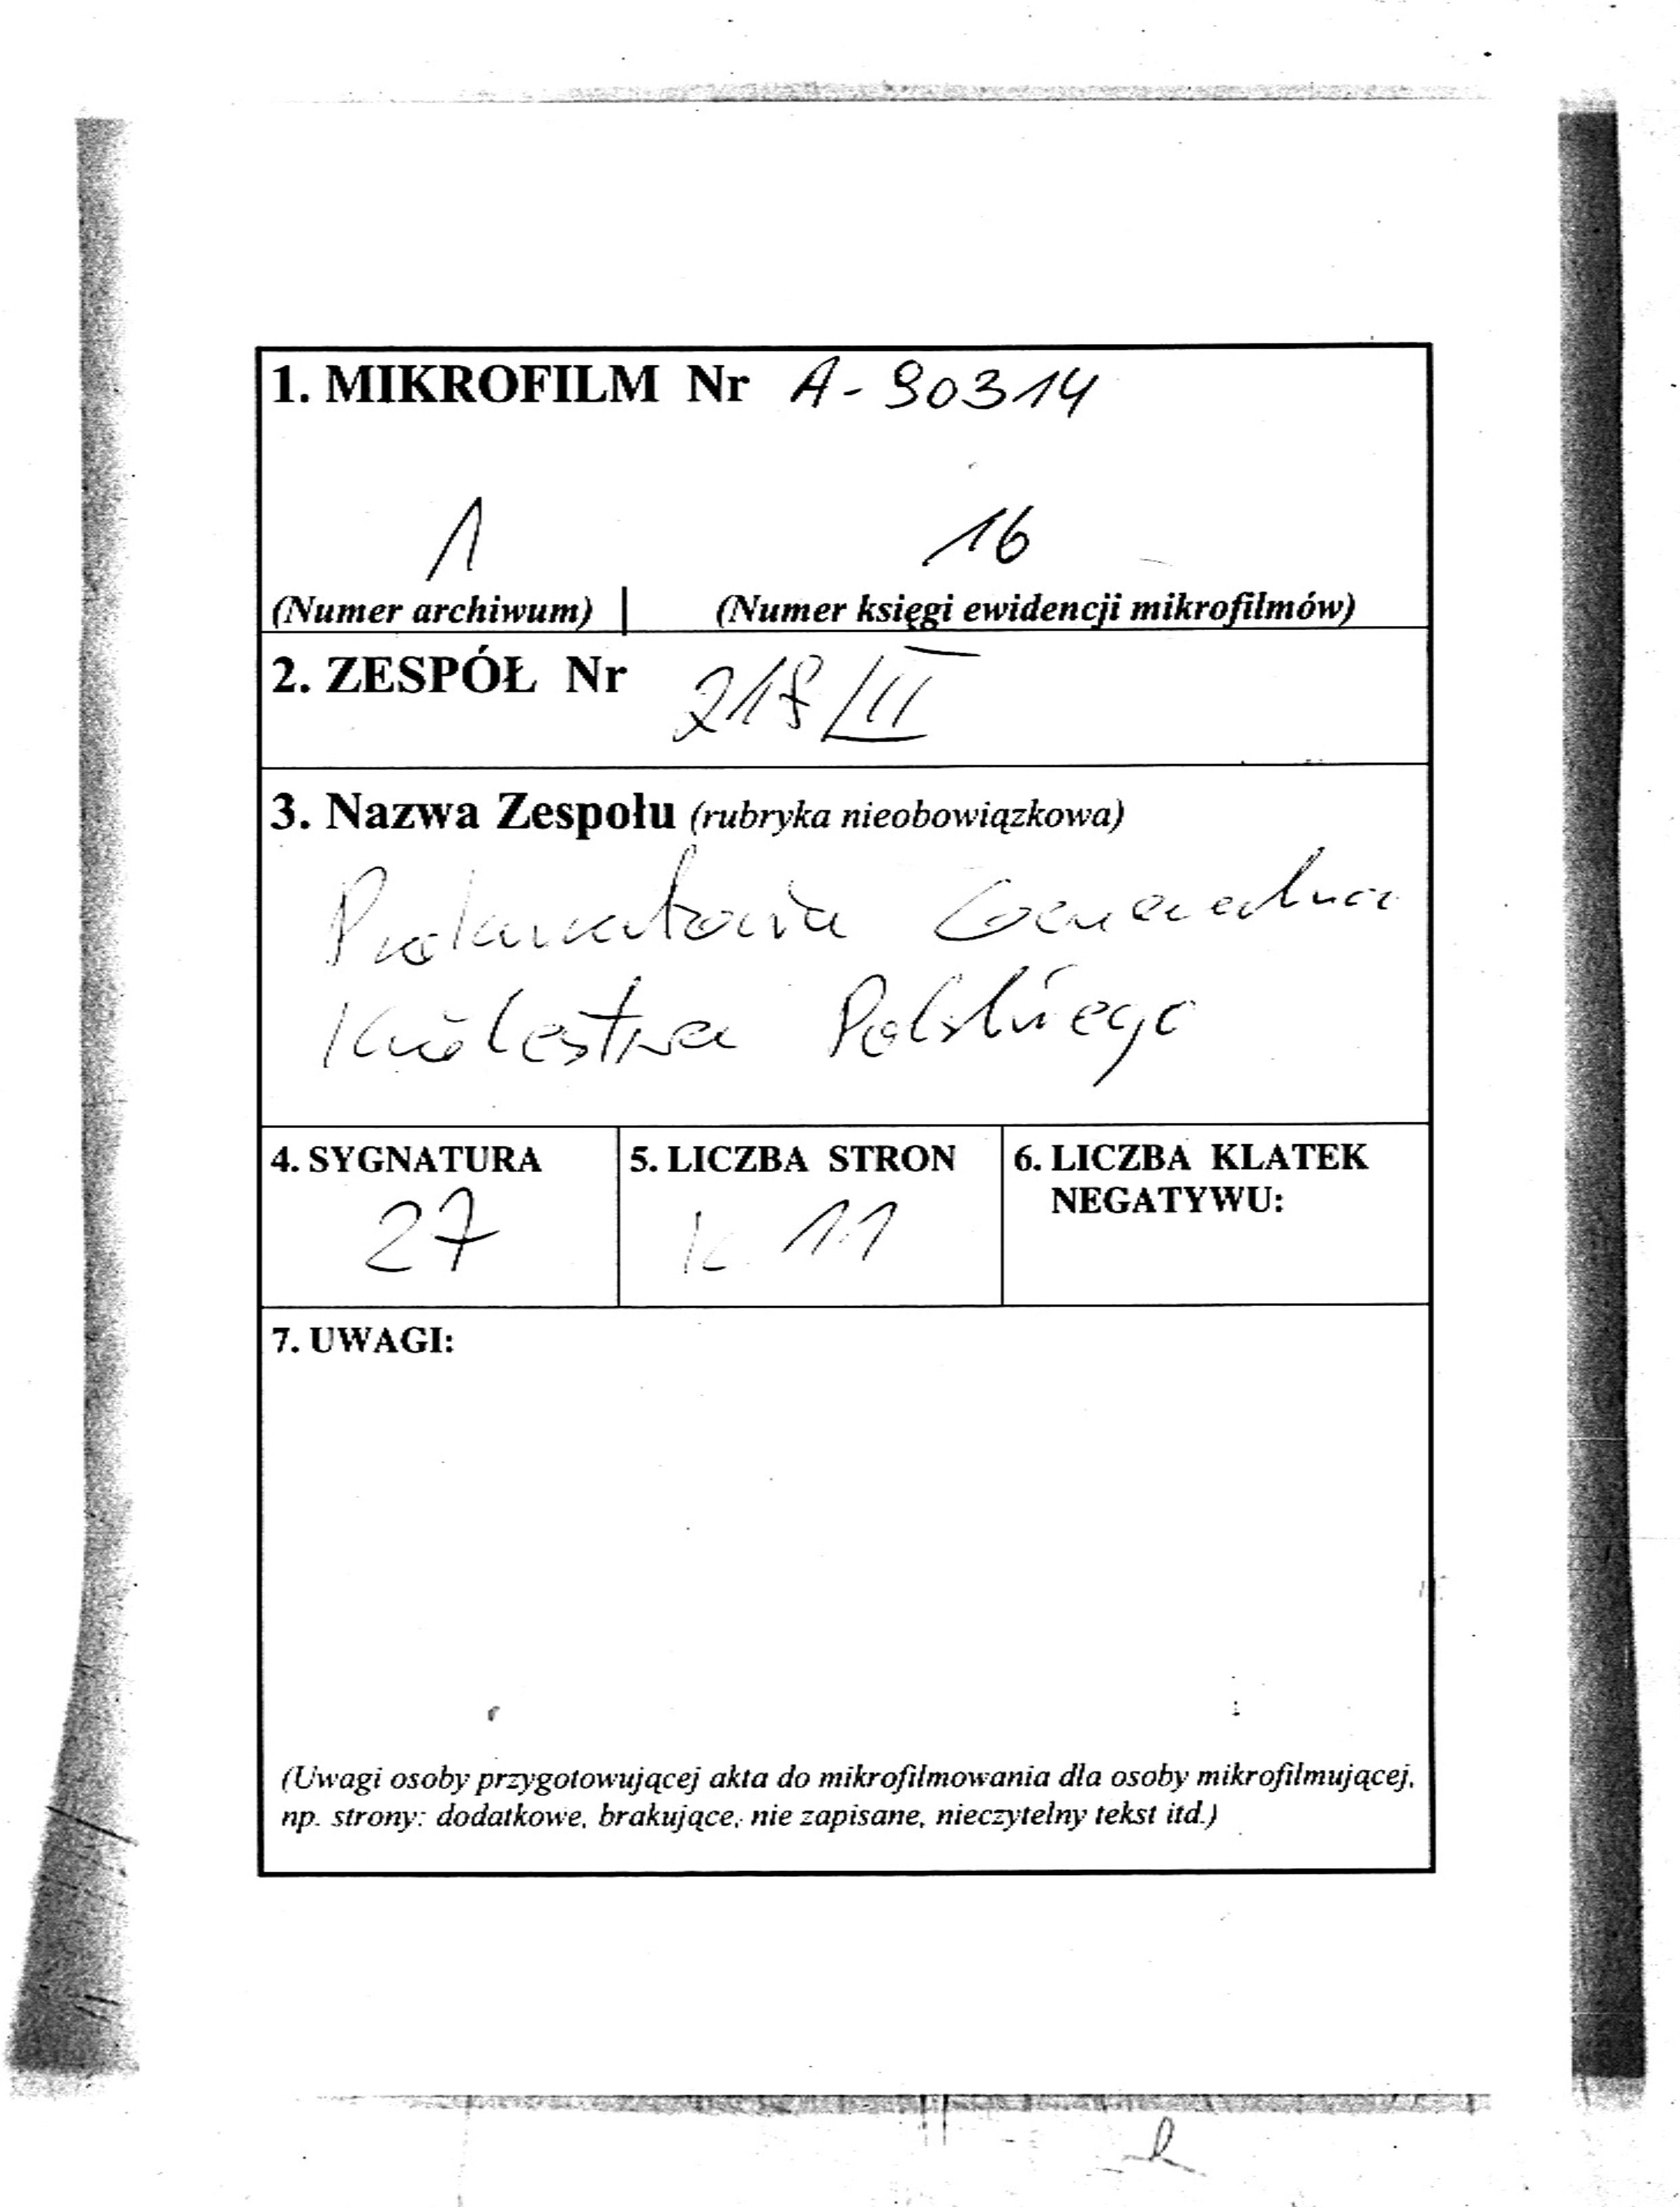 1. MIKROFILM Nr A-90314
1 16
(Numer archiwum) | (Numer księgi ewidencji mikrofilmów)
2. ZESPÓŁ Nr 218/III
3. Nazwa Zespołu (rubryka nieobowiązkowa)
Prokuratoria Generalna
Królestwa Polskiego
4. SYGNATURA 5. LICZBA STRON 6. LICZBA KLATEK
NEGATYWU:
27 k. 11
7. UWAGI:
(Uwagi osoby przygotowującej akta do mikrofilmowania dla osoby mikrofilmującej,
np. strony: dodatkowe, brakujące, nie zapisane, nieczytelny tekst itd.)